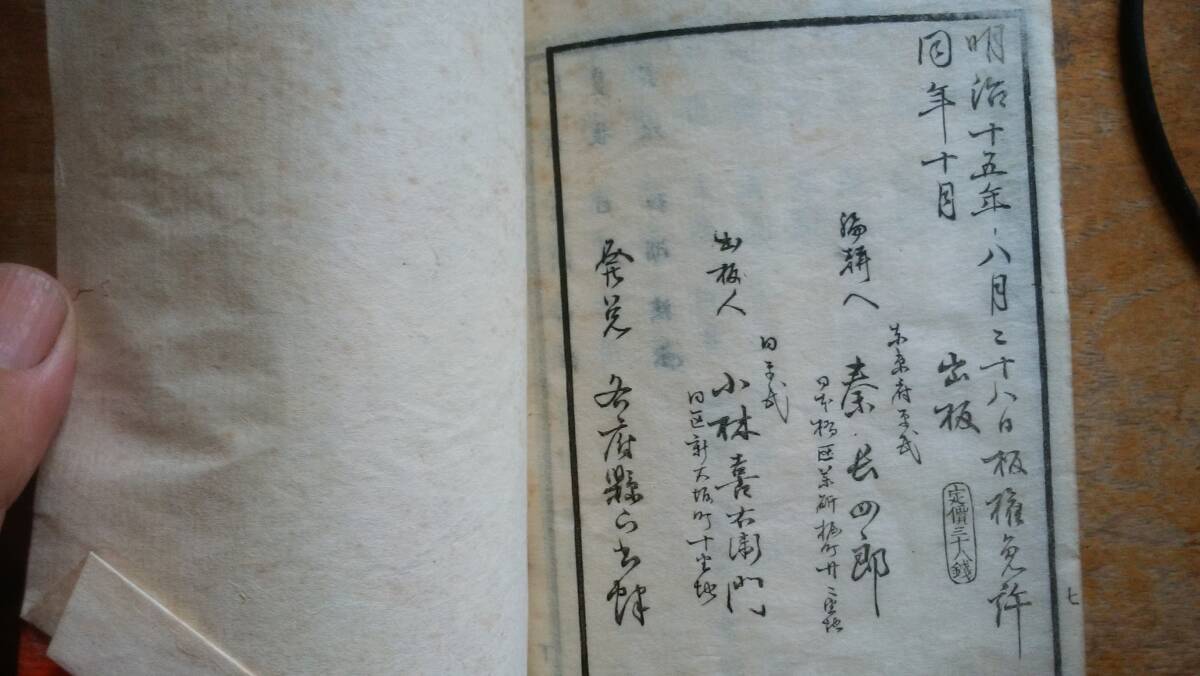 明治十五年八月二十八日板權免許
同年十月
出板
定價三十八錢
編輯人
東京府平民
秦長四郎
日本橋区薬研堀町廿二番地
出板人
同平民
小林喜右衛門
同区新大坂町十番地
發兌
各府縣下書肆
七